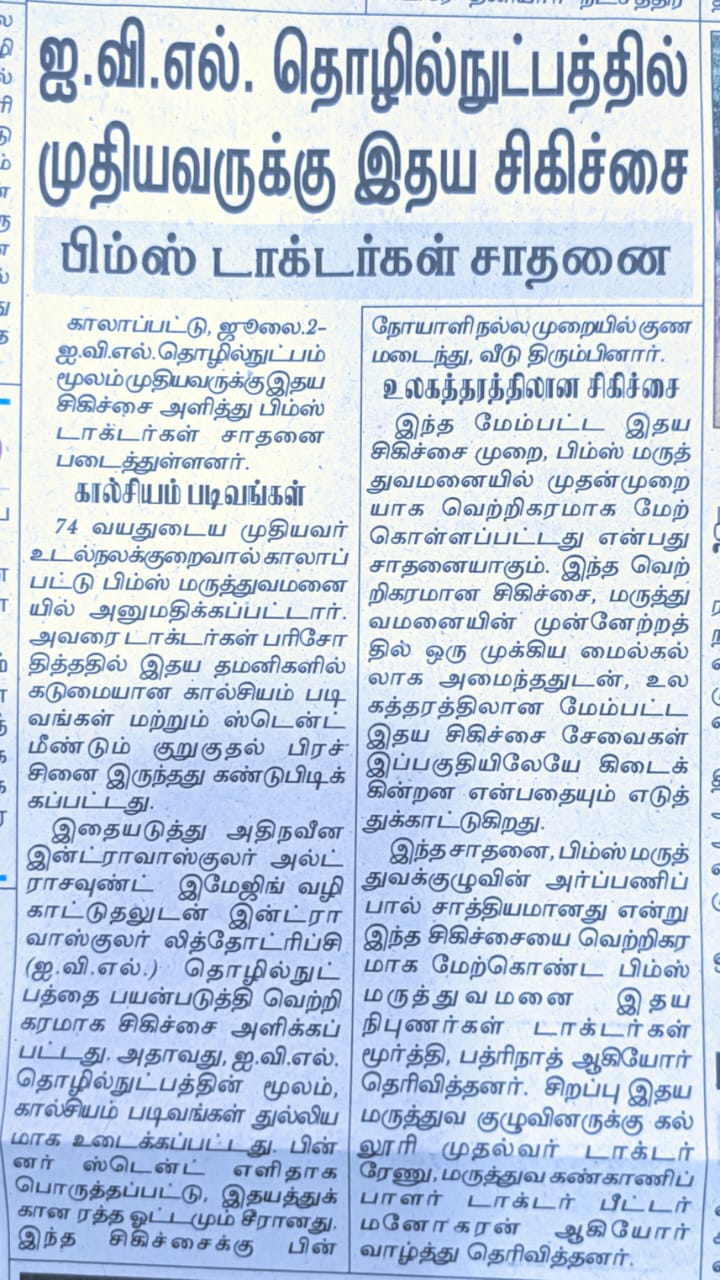 ஐ.வி.எல். தொழில்நுட்பத்தில்
முதியவருக்கு இதய சிகிச்சை
பிம்ஸ் டாக்டர்கள் சாதனை
காலாப்பட்டு, ஜூலை.2-
ஐ.வி.எல்.தொழில்நுட்பம்
மூலம் முதியவருக்கு இதய
சிகிச்சை அளித்து பிம்ஸ்
டாக்டர்கள் சாதனை
படைத்துள்ளனர்.
கால்சியம் படிவங்கள்
74 வயதுடைய முதியவர்
உடல்நலக்குறைவால் காலாப்
பட்டு பிம்ஸ் மருத்துவமனை
யில் அனுமதிக்கப்பட்டார்.
அவரை டாக்டர்கள் பரிசோ
தித்ததில் இதய தமனிகளில்
கடுமையான கால்சியம் படி
வங்கள் மற்றும் ஸ்டென்ட்
மீண்டும் குறுகுதல் பிரச்
சினை இருந்தது கண்டுபிடிக்
கப்பட்டது.
இதையடுத்து அதிநவீன
இன்ட்ராவாஸ்குலர் அல்ட்
ராசவுண்ட் இமேஜிங் வழி
காட்டுதலுடன் இன்ட்ரா
வாஸ்குலர் லித்தோட்ரிப்சி
(ஐ.வி.எல்.) தொழில்நுட்
பத்தை பயன்படுத்தி வெற்றி
கரமாக சிகிச்சை அளிக்கப்
பட்டது. அதாவது, ஐ.வி.எல்.
தொழில்நுட்பத்தின் மூலம்,
கால்சியம் படிவங்கள் துல்லிய
மாக உடைக்கப்பட்டது. பின்
னர் ஸ்டென்ட் எளிதாக
பொருத்தப்பட்டு, இதயத்துக்
கான ரத்த ஓட்டமும் சீரானது.
இந்த சிகிச்சைக்கு பின்
நோயாளி நல்ல முறையில் குண
மடைந்து, வீடு திரும்பினார்.
உலகத்தரத்திலான சிகிச்சை
இந்த மேம்பட்ட இதய
சிகிச்சை முறை, பிம்ஸ் மருத்
துவமனையில் முதன்முறை
யாக வெற்றிகரமாக மேற்
கொள்ளப்பட்டது என்பது
சாதனையாகும். இந்த வெற்
றிகரமான சிகிச்சை, மருத்து
வமனையின் முன்னேற்றத்
தில் ஒரு முக்கிய மைல்கல்
லாக அமைந்ததுடன், உல
கத்தரத்திலான மேம்பட்ட
இதய சிகிச்சை சேவைகள்
இப்பகுதியிலேயே கிடைக்
கின்றன என்பதையும் எடுத்
துக்காட்டுகிறது.
இந்த சாதனை, பிம்ஸ் மருத்
துவக்குழுவின் அர்ப்பணிப்
பால் சாத்தியமானது என்று
இந்த சிகிச்சையை வெற்றிகர
மாக மேற்கொண்ட பிம்ஸ்
மருத்துவமனை இதய
நிபுணர்கள் டாக்டர்கள்
மூர்த்தி, பத்ரிநாத் ஆகியோர்
தெரிவித்தனர். சிறப்பு இதய
மருத்துவ குழுவினருக்கு கல்
லூரி முதல்வர் டாக்டர்
ரேணு, மருத்துவ கண்காணிப்
பாளர் டாக்டர் பீட்டர்
மனோகரன் ஆகியோர்
வாழ்த்து தெரிவித்தனர்.